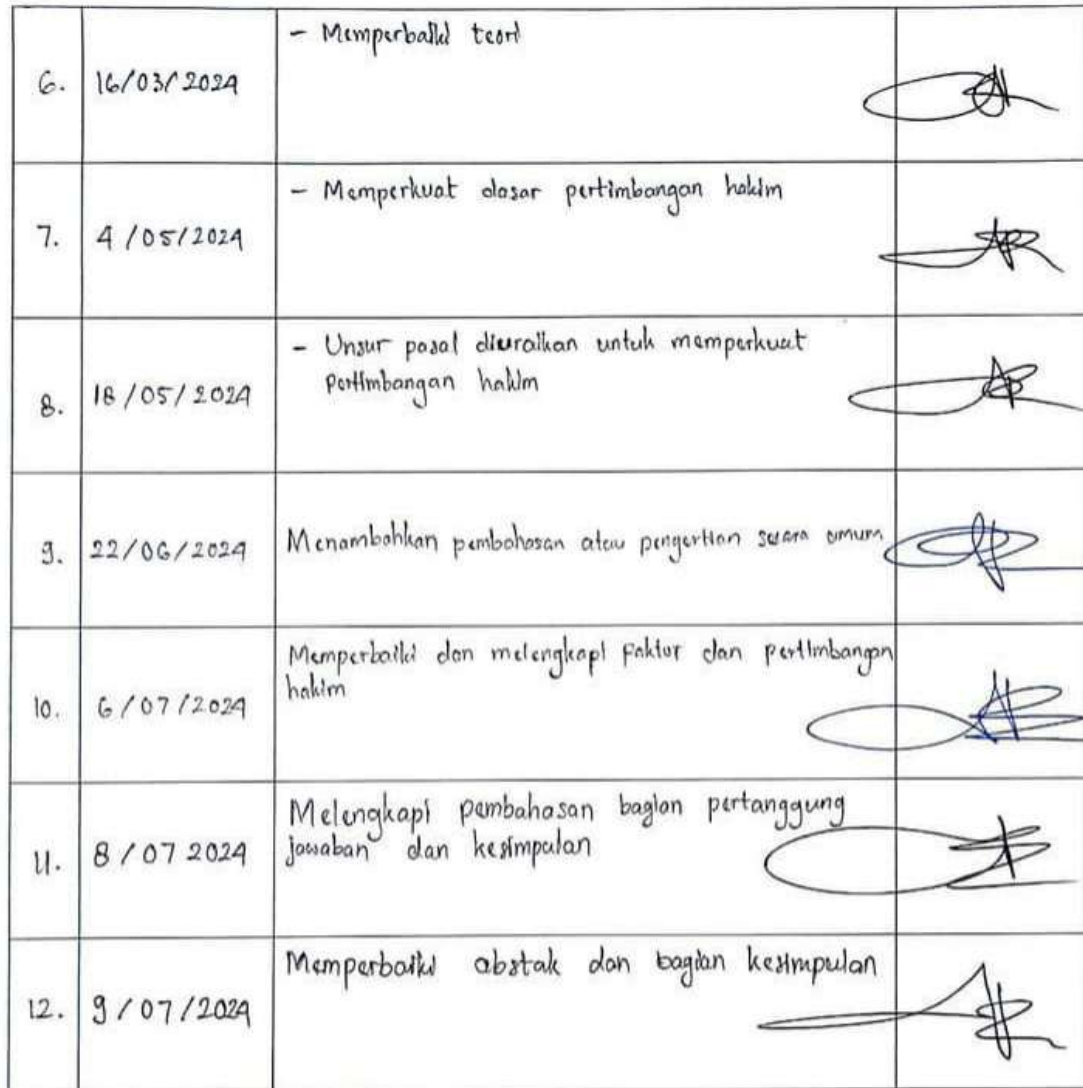 6. 16/03/2024 - Memperbaiki teori
7. 4/05/2024 - Memperkuat dasar pertimbangan hakim
8. 18/05/2024 - Unsur pasal diuraikan untuk memperkuat
pertimbangan hakim
9. 22/06/2024 Menambahkan pembahasan atau pengertian secara umum
10. 6/07/2024 Memperbaiki dan melengkapi faktor dan pertimbangan
hakim
11. 8/07 2024 Melengkapi pembahasan bagian pertanggung
jawaban dan kesimpulan
12. 9/07/2024 Memperbaiki abstak dan bagian kesimpulan